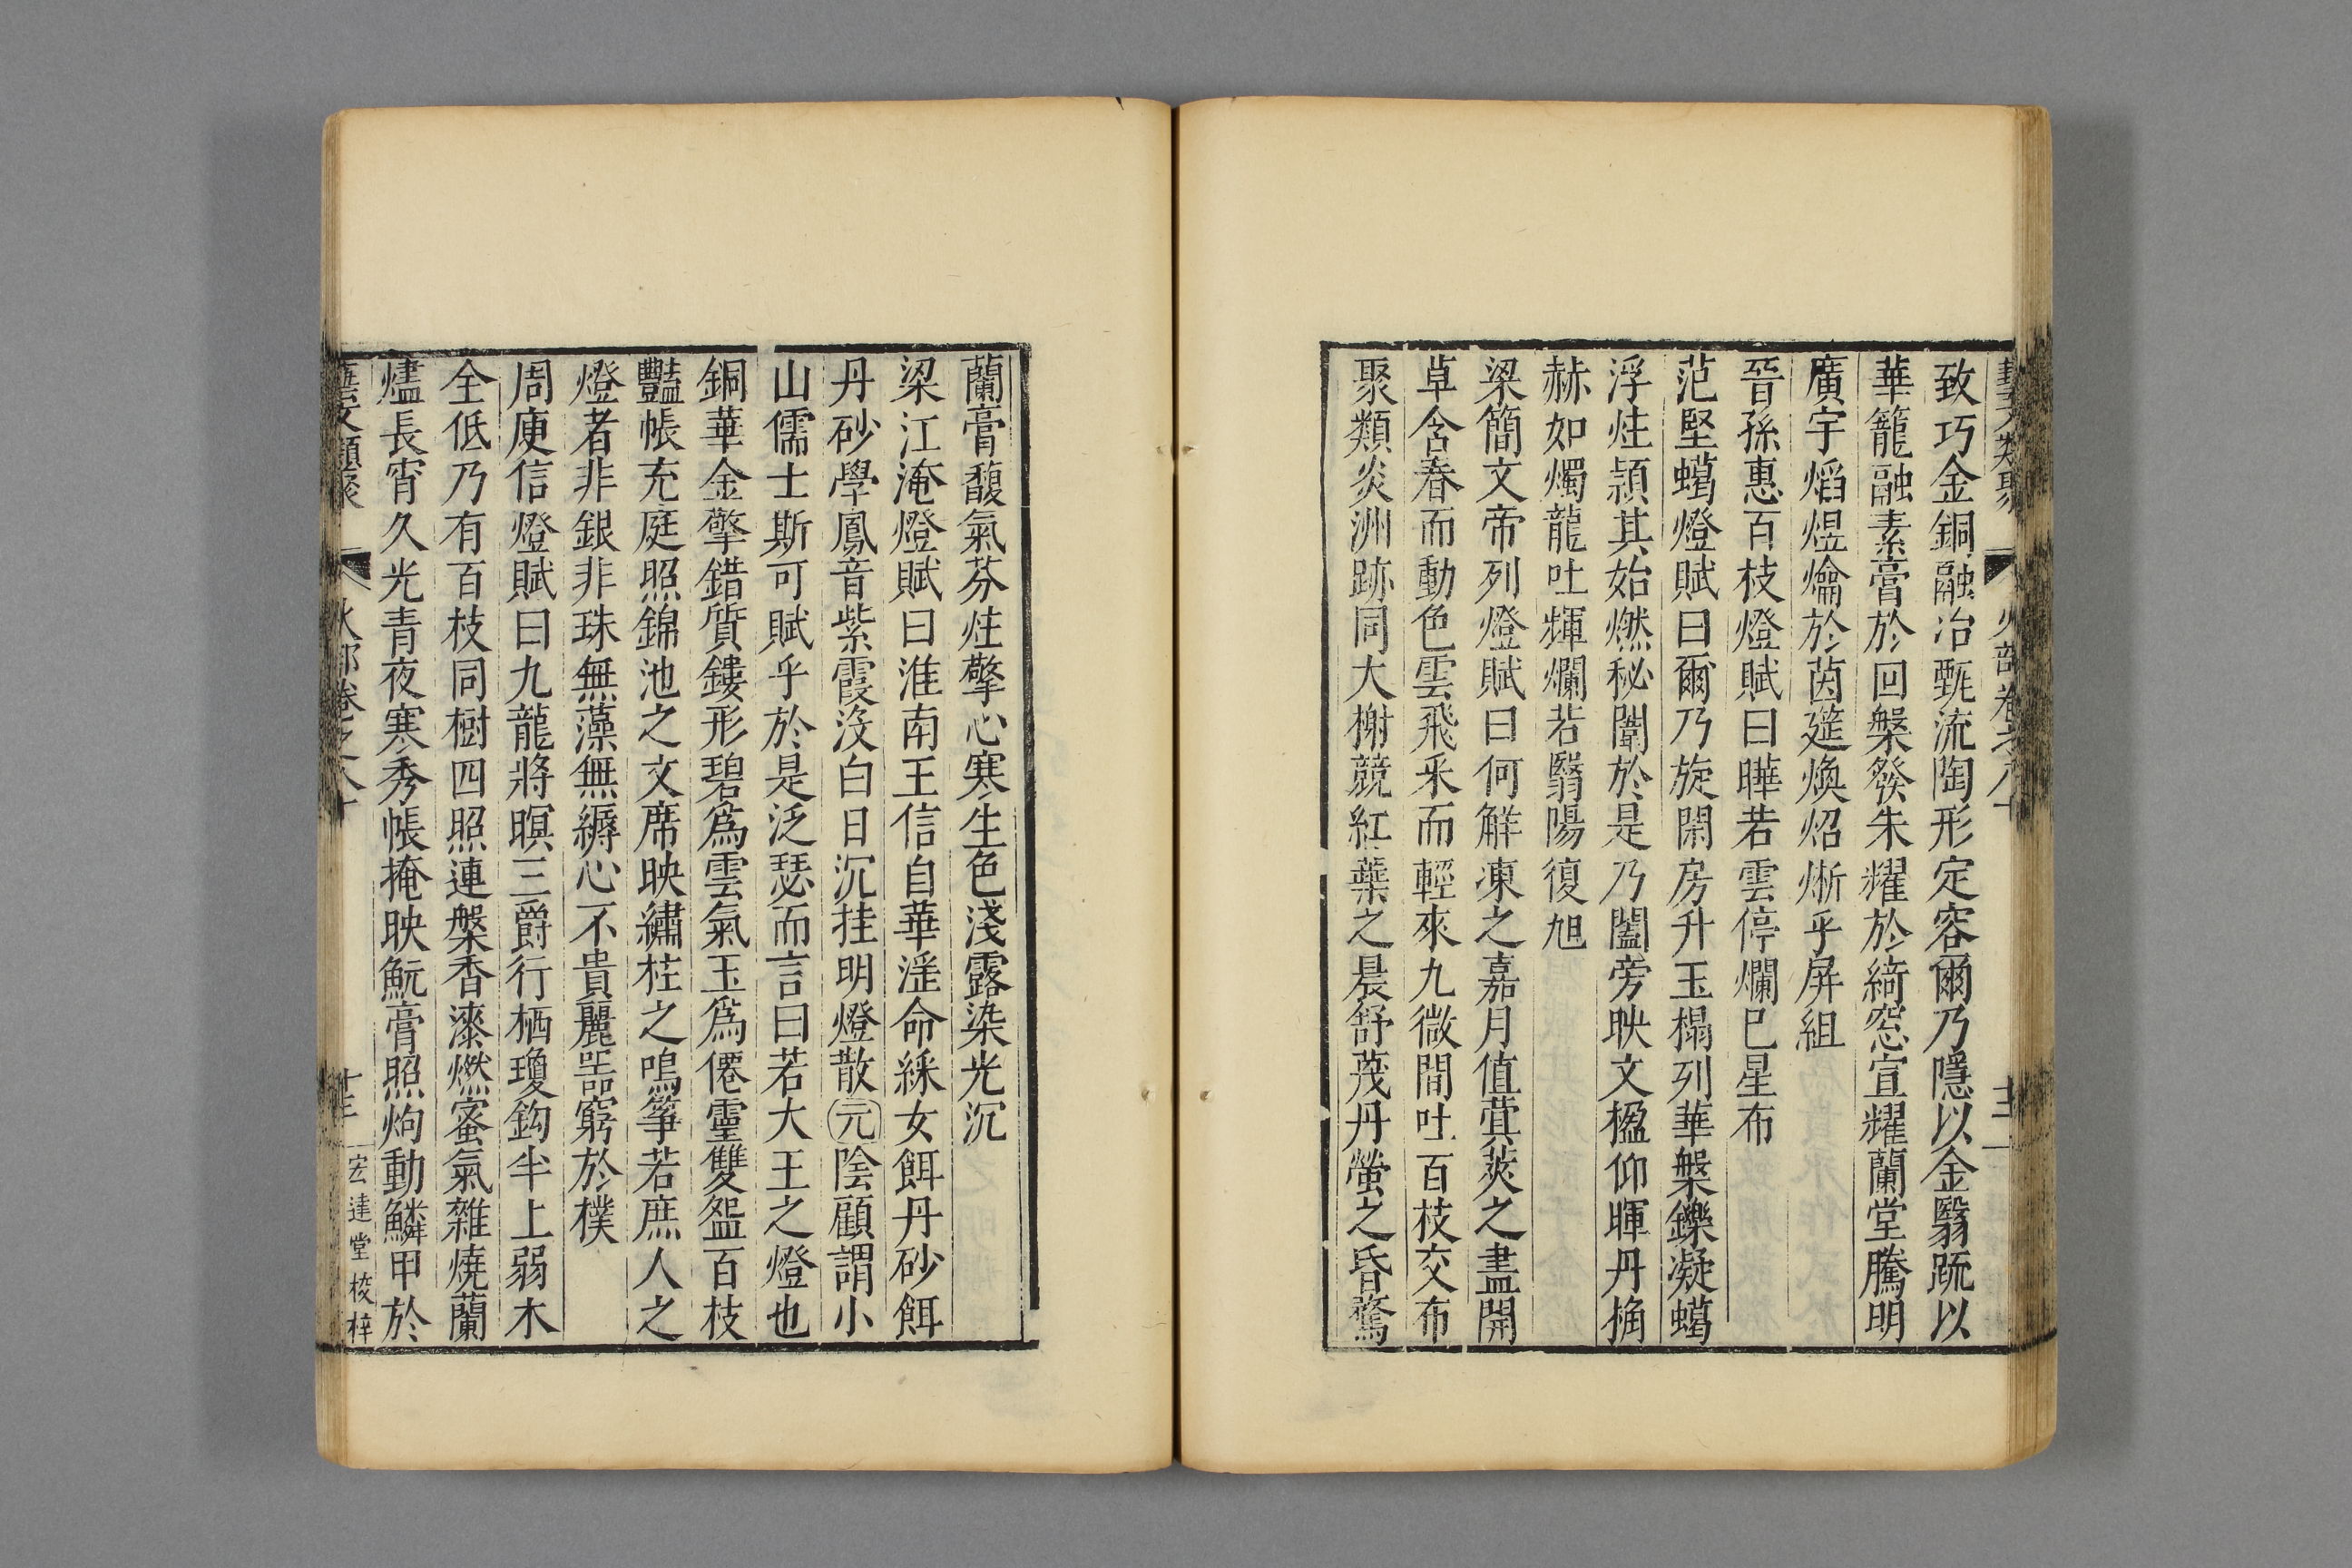 藝文類聚 火部卷之八十 十二
致巧金銅融冶甄流陶形定容爾乃隱以金翳疏以
華籠融素膏於回槃發朱耀於綺窓宣耀蘭堂騰明
廣宇熖煜爚於茵筵煥炤晰乎屏組
晉孫惠百枝燈賦曰曄若雲停爛已星布
范堅蠟燈賦曰爾乃旋閑房升玉榻列華槃鑠凝蠟
浮炷頴其始燃秘闈於是乃闔旁映文楹仰暉丹桷
赫如燭龍吐輝爛若翳陽復旭
梁簡文帝列燈賦曰何解凍之嘉月值蓂莢之盡開
草含春而動色雲飛采而輕來九微間吐百枝交布
聚類炎洲跡同大榭競紅蘂之晨舒蔑丹螢之昏騖
蘭膏馥氣芬炷擎心寒生色淺露染光沉
梁江淹燈賦曰淮南王信自華滛命綵女餌丹砂餌
丹砂學鳳音紫霞沒白日沉挂明燈散元陰顧謂小
山儒士斯可賦乎於是泛瑟而言曰若大王之燈也
銅華金擎錯質鏤形碧爲雲氣玉爲僊靈雙盌百枝
豔帳充庭照錦池之文席映繡柱之鳴箏若庶人之
燈者非銀非珠無藻無縟心不貴麗噐窮於樸
周庾信燈賦曰九龍將暝三爵行栖瓊鈎半上弱木
全低乃有百枝同樹四照連槃香漆燃蜜氣雜燒蘭
燼長宵久光青夜寒秀帳掩映魭膏照灼動鱗甲於
藝文類聚 火部卷之八十 十三 宏達堂校梓